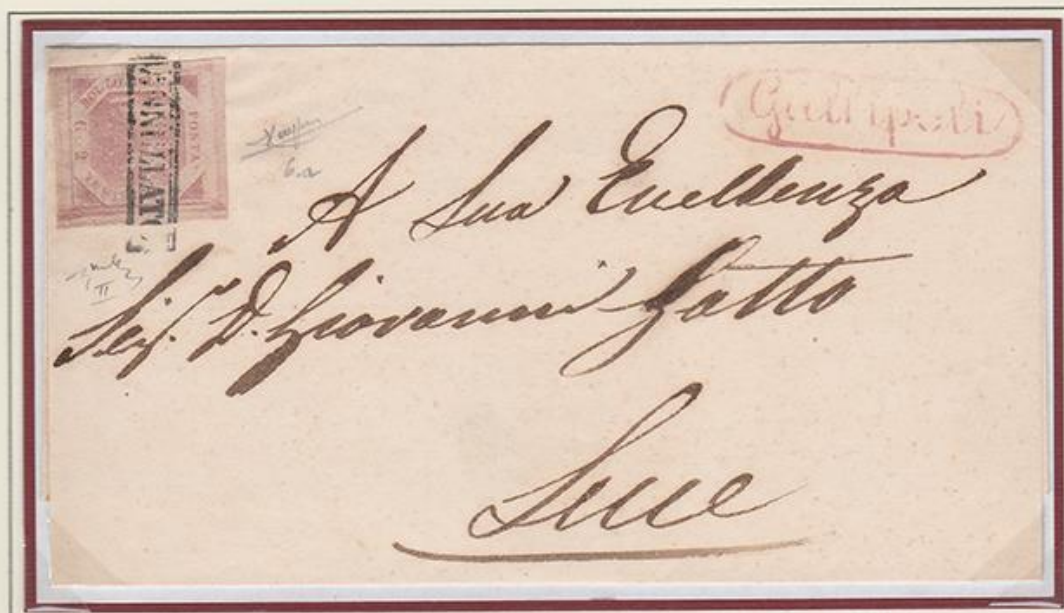 POSTA
G. 2
ANNULLATO
Gallipoli
6.a
A Sua Eccellenza
II
Sig. D. Giovanni Gatto
Lecce